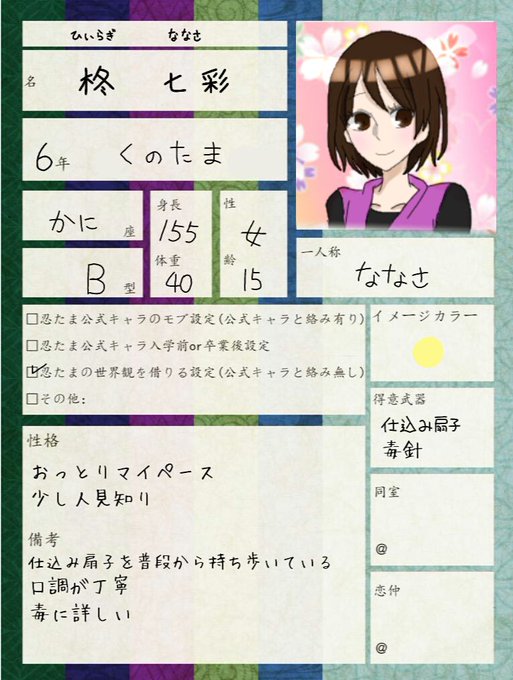 ひいらぎ ななさ
名 柊 七彩
6年 くのたま
かに 座
B 型
身長
155
体重
40
性
女
齢
15
一人称
ななさ
□忍たま公式キャラのモブ設定(公式キャラと絡み有り)
□忍たま公式キャラ入学前or卒業後設定
☑忍たまの世界観を借りる設定(公式キャラと絡み無し)
□その他:
イメージカラー
得意武器
仕込み扇子
毒針
同室
@
恋仲
@
性格
おっとりマイペース
少し人見知り
備考
仕込み扇子を普段から持ち歩いている
口調が丁寧
毒に詳しい